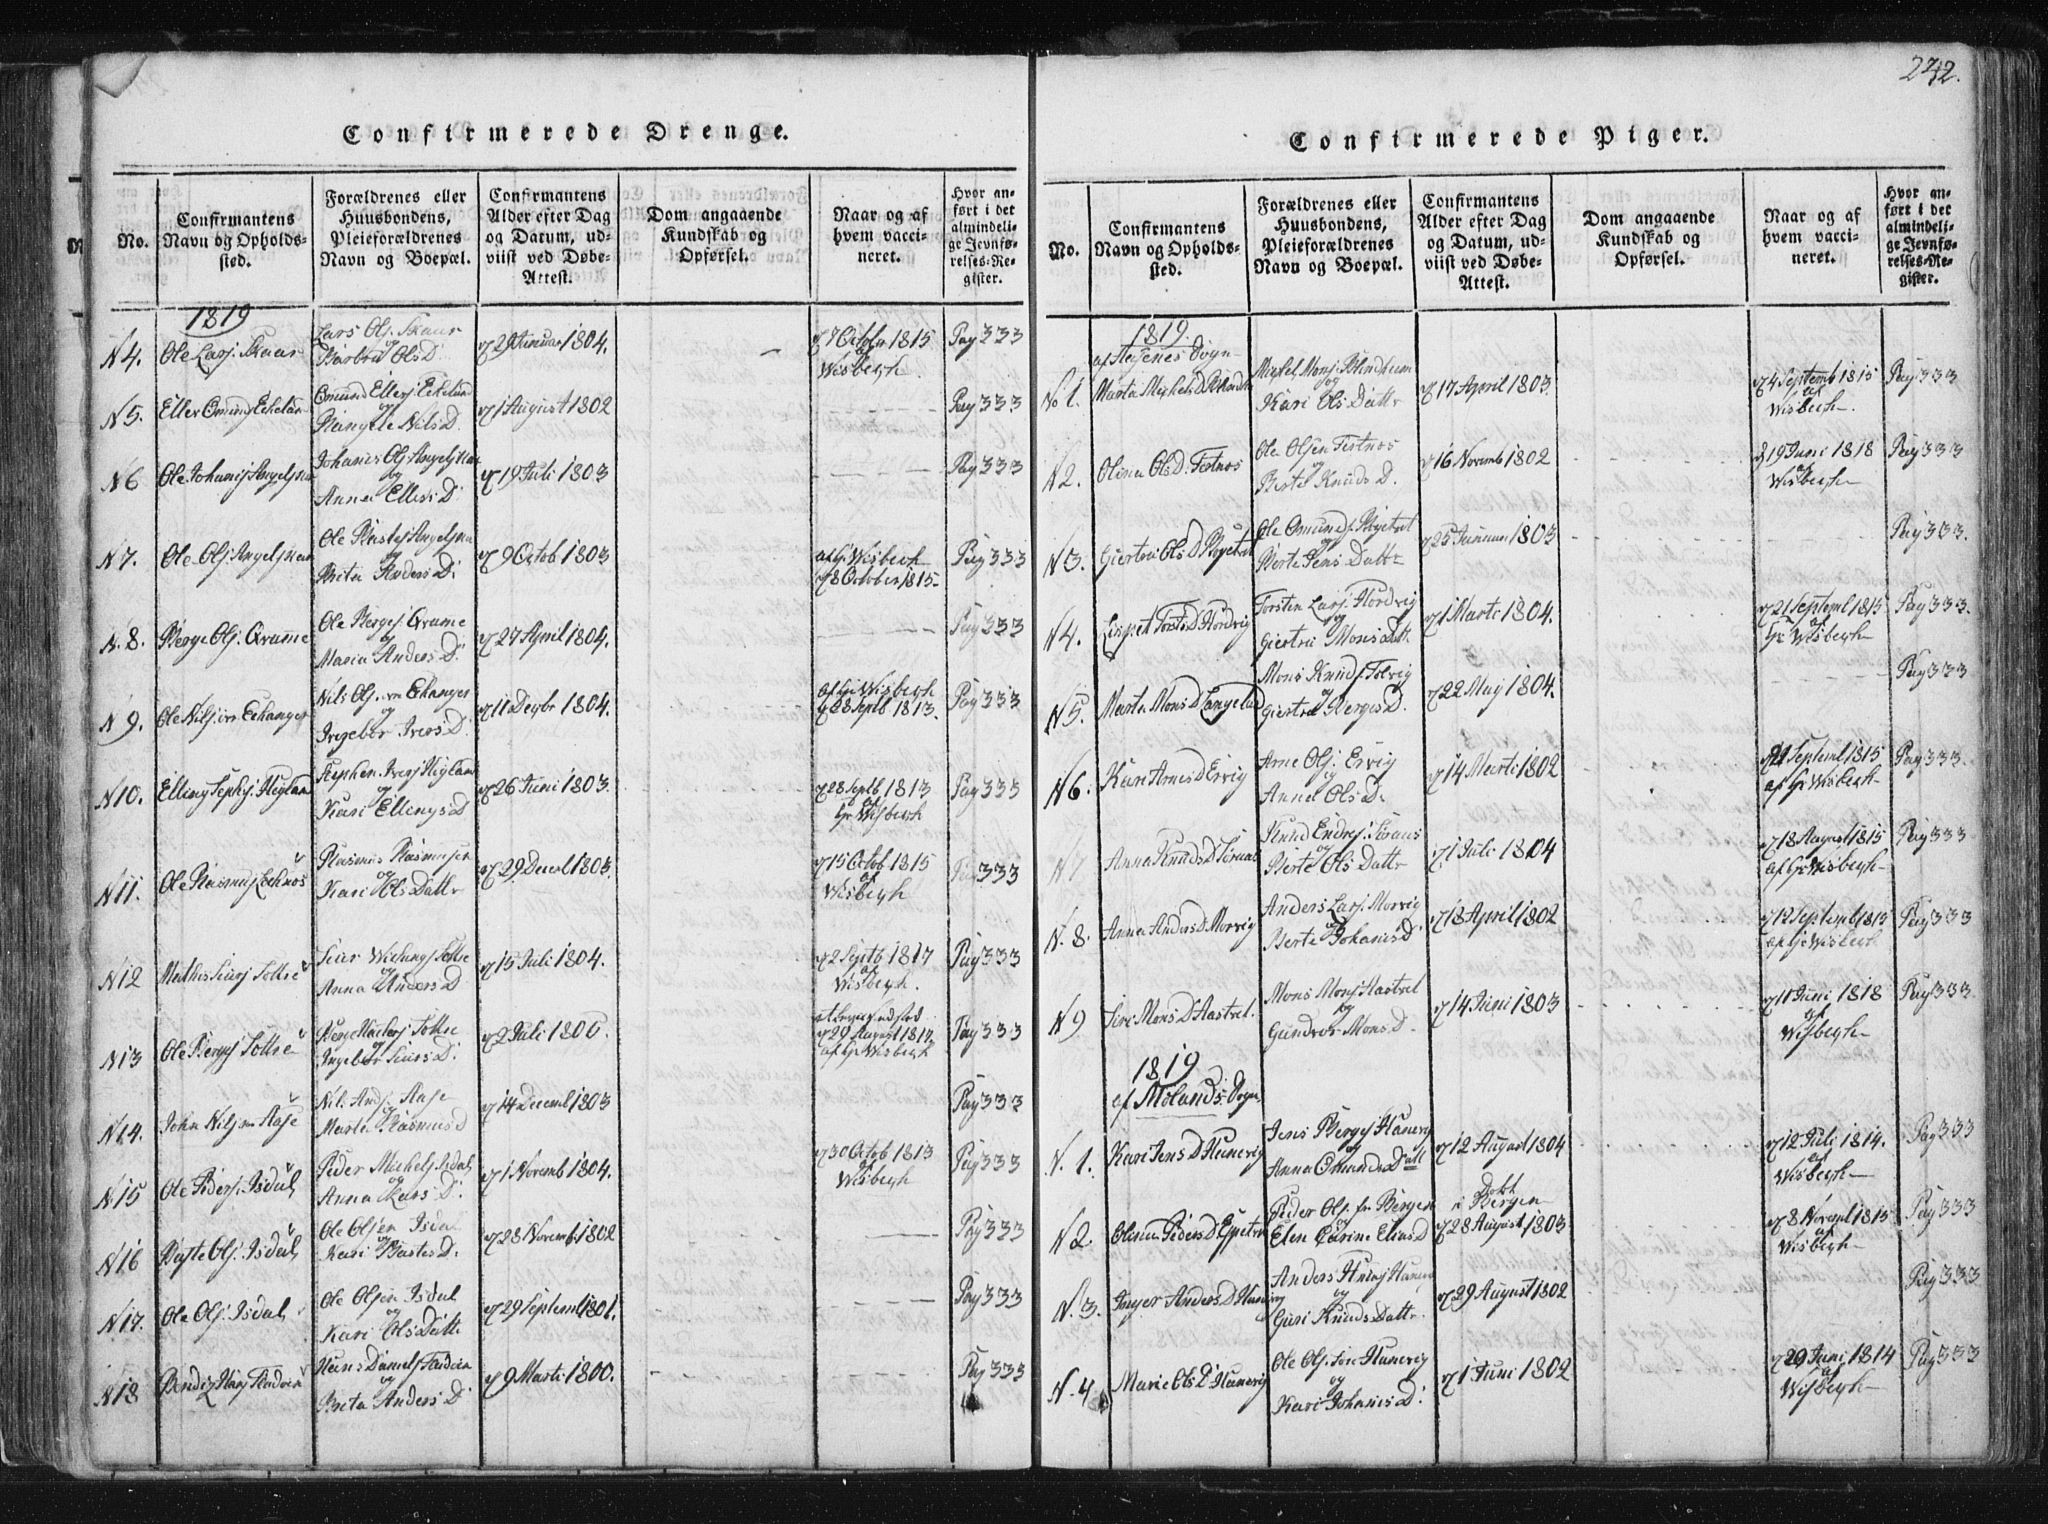 242.
Confirmerede Drenge.
No.
Confirmantens
Navn og Opholds-
sted.
Forældrenes eller
Huusbondens,
Pleieforældrenes
Navn og Boepæl.
Confirmantens
Alder efter Dag
og Datum, ud-
viist ved Døbe-
Attest.
Dom angaaende
Kundskab og
Opførsel.
Naar og af
hvem vacci-
neret.
Hvor an-
ført i det
almindeli-
ge Jevnfø-
relses-Re-
gister.
1819
N4.
Ole Larsj. Skaar
Lars Olsj. Skaar
og
Barbra Ols D.
29 Januar 1804.
7 Octobr 1815
Wisbegh.
Pag 333
N5.
Eller Omundsj Eikeland
Omund Ellersj Eikeland
og
Nils D.
1 August 1802
Pag 333
N6
Ole Johanisj
Johanis Olsj
og
Anna Ellers D.
19 Juli 1803
Pag 333
N7.
Ole Olsj.
Ole
og
Brita Anders D.
9 Octob 1803
af Hr Wisbegh
8 October 1815
Pag 333
N.8.
Berge Olsj. Qvamme
Ole Bergesj. Qvamme
og
Maria Anders D.
27 April 1804.
Pag 333
N9.
Ole Nilsj. Echanger
Nils Olsj. Echanger
og
Ingebor Ivers D.
11 Decbr 1804.
af Hr Wisbegh
28 Septb 1813.
Pag 333
N10.
Elling Stephsj. Hegland
Stephen Iversj Hegland
og
Kari Ellings D
26 Juni 1803.
28 Septb 1813
af
Hr Wisbegh
Pag 333
N11.
Ole Rasmusj Echnes
Rasmus Rasmusen
og
Kari Ols Dattr
29 Decel 1803.
15 Octob 1815
af
Wisbegh
Pag 333
N12
Mathis Siursj Sottre
Siur Sottre
og
Anna Anders D
15 Juli 1804.
2 Septb 1817
af
Wisbegh.
Pag 333
N13
Ole Bergesj Sottre
Berge Sottre
og
Ingebor Siurs D.
2 Juli 1800.
29 August 1817
af Hr Wisbegh
Pag 333
N14.
John Nilsj. Aase
Nils Andsj. Aase
og
Marta Rasmus D
14 Decembl 1803
Pag 333
N15
Ole Pedersj. Isdal
Peder Michelsj Isdal
og
Anna Lars D.
1 Novemb 1804.
30 Octob 1813
af
Wisbegh
Pag 333
N16
Olsj. Isdal
Ole Olsen Isdal
og
Kari D.
28 Novemb 1802
Pag 333
N17.
Ole Olsj. Isdal
Ole Olsen Isdal
og
Kari Ols Dattr
29 Septembl 1801.
Pag 333
N18
Hans Danielsj
og
Brita Anders D
9 Marti 1800.
Pag 333
Confirmerede Piger.
No.
Confirmantens
Navn og Opholds-
sted.
Forældrenes eller
Huusbondens,
Pleieforældrenes
Navn og Boepæl.
Confirmantens
Alder efter Dag
og Datum, ud-
viist ved Døbe-
Attest.
Dom angaaende
Kundskab og
Opførsel.
Naar og af
hvem vacci-
neret.
Hvor an-
ført i det
almindeli-
ge Jevnfø-
relses-Re-
gister.
1819.
af Sogn
No 1.
Marta Michels D Blindheim
Michel Monsj. Blindheim
og
Kari Ols Dattr
17 April 1803
4 Septemb 1815
af
Wisbegh
Pag 333
N2.
Olina Ols D. Festnes
Ole Olsen Festnes
og
Berte Knuds D.
16 Novemb 1802
19 Juni 1818
af
Wisbegh
Pag 333
N3.
Giertru Ols D
Ole Omundsj.
og
Berte Jens Dattr
25 Januar 1803
Pag 333.
N4.
Lispet Torst D Hordvig
Torsten Larsj. Hordvig
og
Giertru Mons Datt.
1 Marti 1804.
21 Septembl 1815
af
Hr Wisbegh
Pag 333.
N5.
Marta Mons D Langeland
Mons Knudsj.
og
Giertru Berges D.
22 Maj 1804.
Pag 333
N6.
Kari Arnes D Ervig
Arne Olsj. Ervig
og
Anna Ols D.
14 Marti 1802
21 Septembl 1815
af Hr Wisbegh
Pag 333.
N7
Anna Knuds D
Knud Endresj.
og
Berte Ols Dattr
1 Juli 1804
18 August 1815
af Hr Wisbegh
Pag 333
N.8.
Anna Anders D Morvig
Anders Larsj. Morvig
og
Berte Johanis D.
18 April 1802
12 Septembl 1815
af Hr Wisbegh
Pag 333
N9
Siri Mons D Hastret.
Mons Monsj. Hastret
og
Gundvor Mons D.
14 Juni 1803
11 Juni 1818
af
Wisbegh
Pag 333
1819
af Molands Sogn
N.1.
Kari Jens D Hunevig
Jens Bergesj Hunevig
og
Anna Omunds Datt
12 August 1804
12 Juli 1814.
af
Wisbegh
Pag 333
N2.
Olina Peders D
Peder Olsj. fr Bergen
Elen Carine Elias D
Døbt
i Bergen
28 August 1803
8 Novembl 1815
af
Wisbegh
Pag 333
N.3.
Inger Anders D Hunevig
Anders Hunevig
og
Guri Knuds Dattr
29 August 1802
Pag 333
N.4
Marie Ols D Hunevig
Ole Olsj. Hunevig
og
Kari Johanis D.
1 Juni 1802
29 Juni 1814
af
Wisbegh
Pag 333